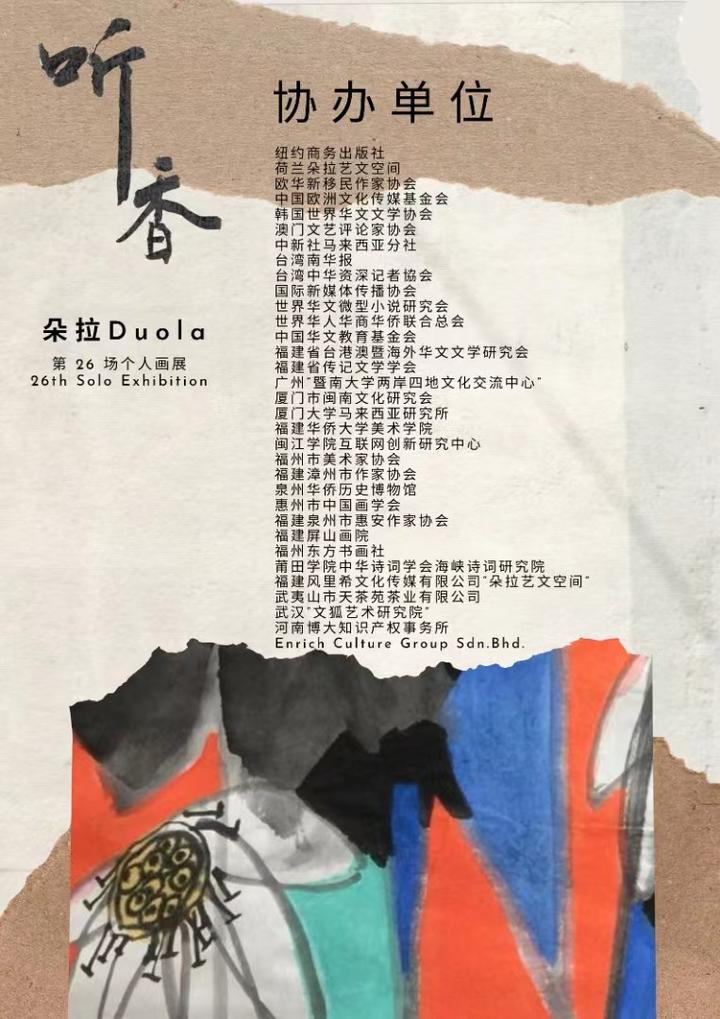 听香
朵拉Duola
第 26 场个人画展
26th Solo Exhibition
协办单位
纽约商务出版社
荷兰朵拉艺文空间
欧华新移民作家协会
中国欧洲文化传媒基金会
韩国世界华文文学协会
澳门文艺评论家协会
中新社马来西亚分社
台湾南华报
台湾中华资深记者協会
国际新媒体传播协会
世界华文微型小说研究会
世界华人华商华侨联合总会
中国华文教育基金会
福建省台港澳暨海外华文文学研究会
福建省传记文学学会
广州"暨南大学两岸四地文化交流中心"
厦门市闽南文化研究会
厦门大学马来西亚研究所
福建华侨大学美术学院
闽江学院互联网创新研究中心
福州市美术家协会
福建漳州市作家协会
泉州华侨历史博物馆
惠州市中国画学会
福建泉州市惠安作家协会
福建屏山画院
福州东方书画社
莆田学院中华诗词学会海峡诗词研究院
福建风里希文化传媒有限公司"朵拉艺文空间"
武夷山市天茶苑茶业有限公司
武汉"文狐艺术研究院"
河南博大知识产权事务所
Enrich Culture Group Sdn.Bhd.